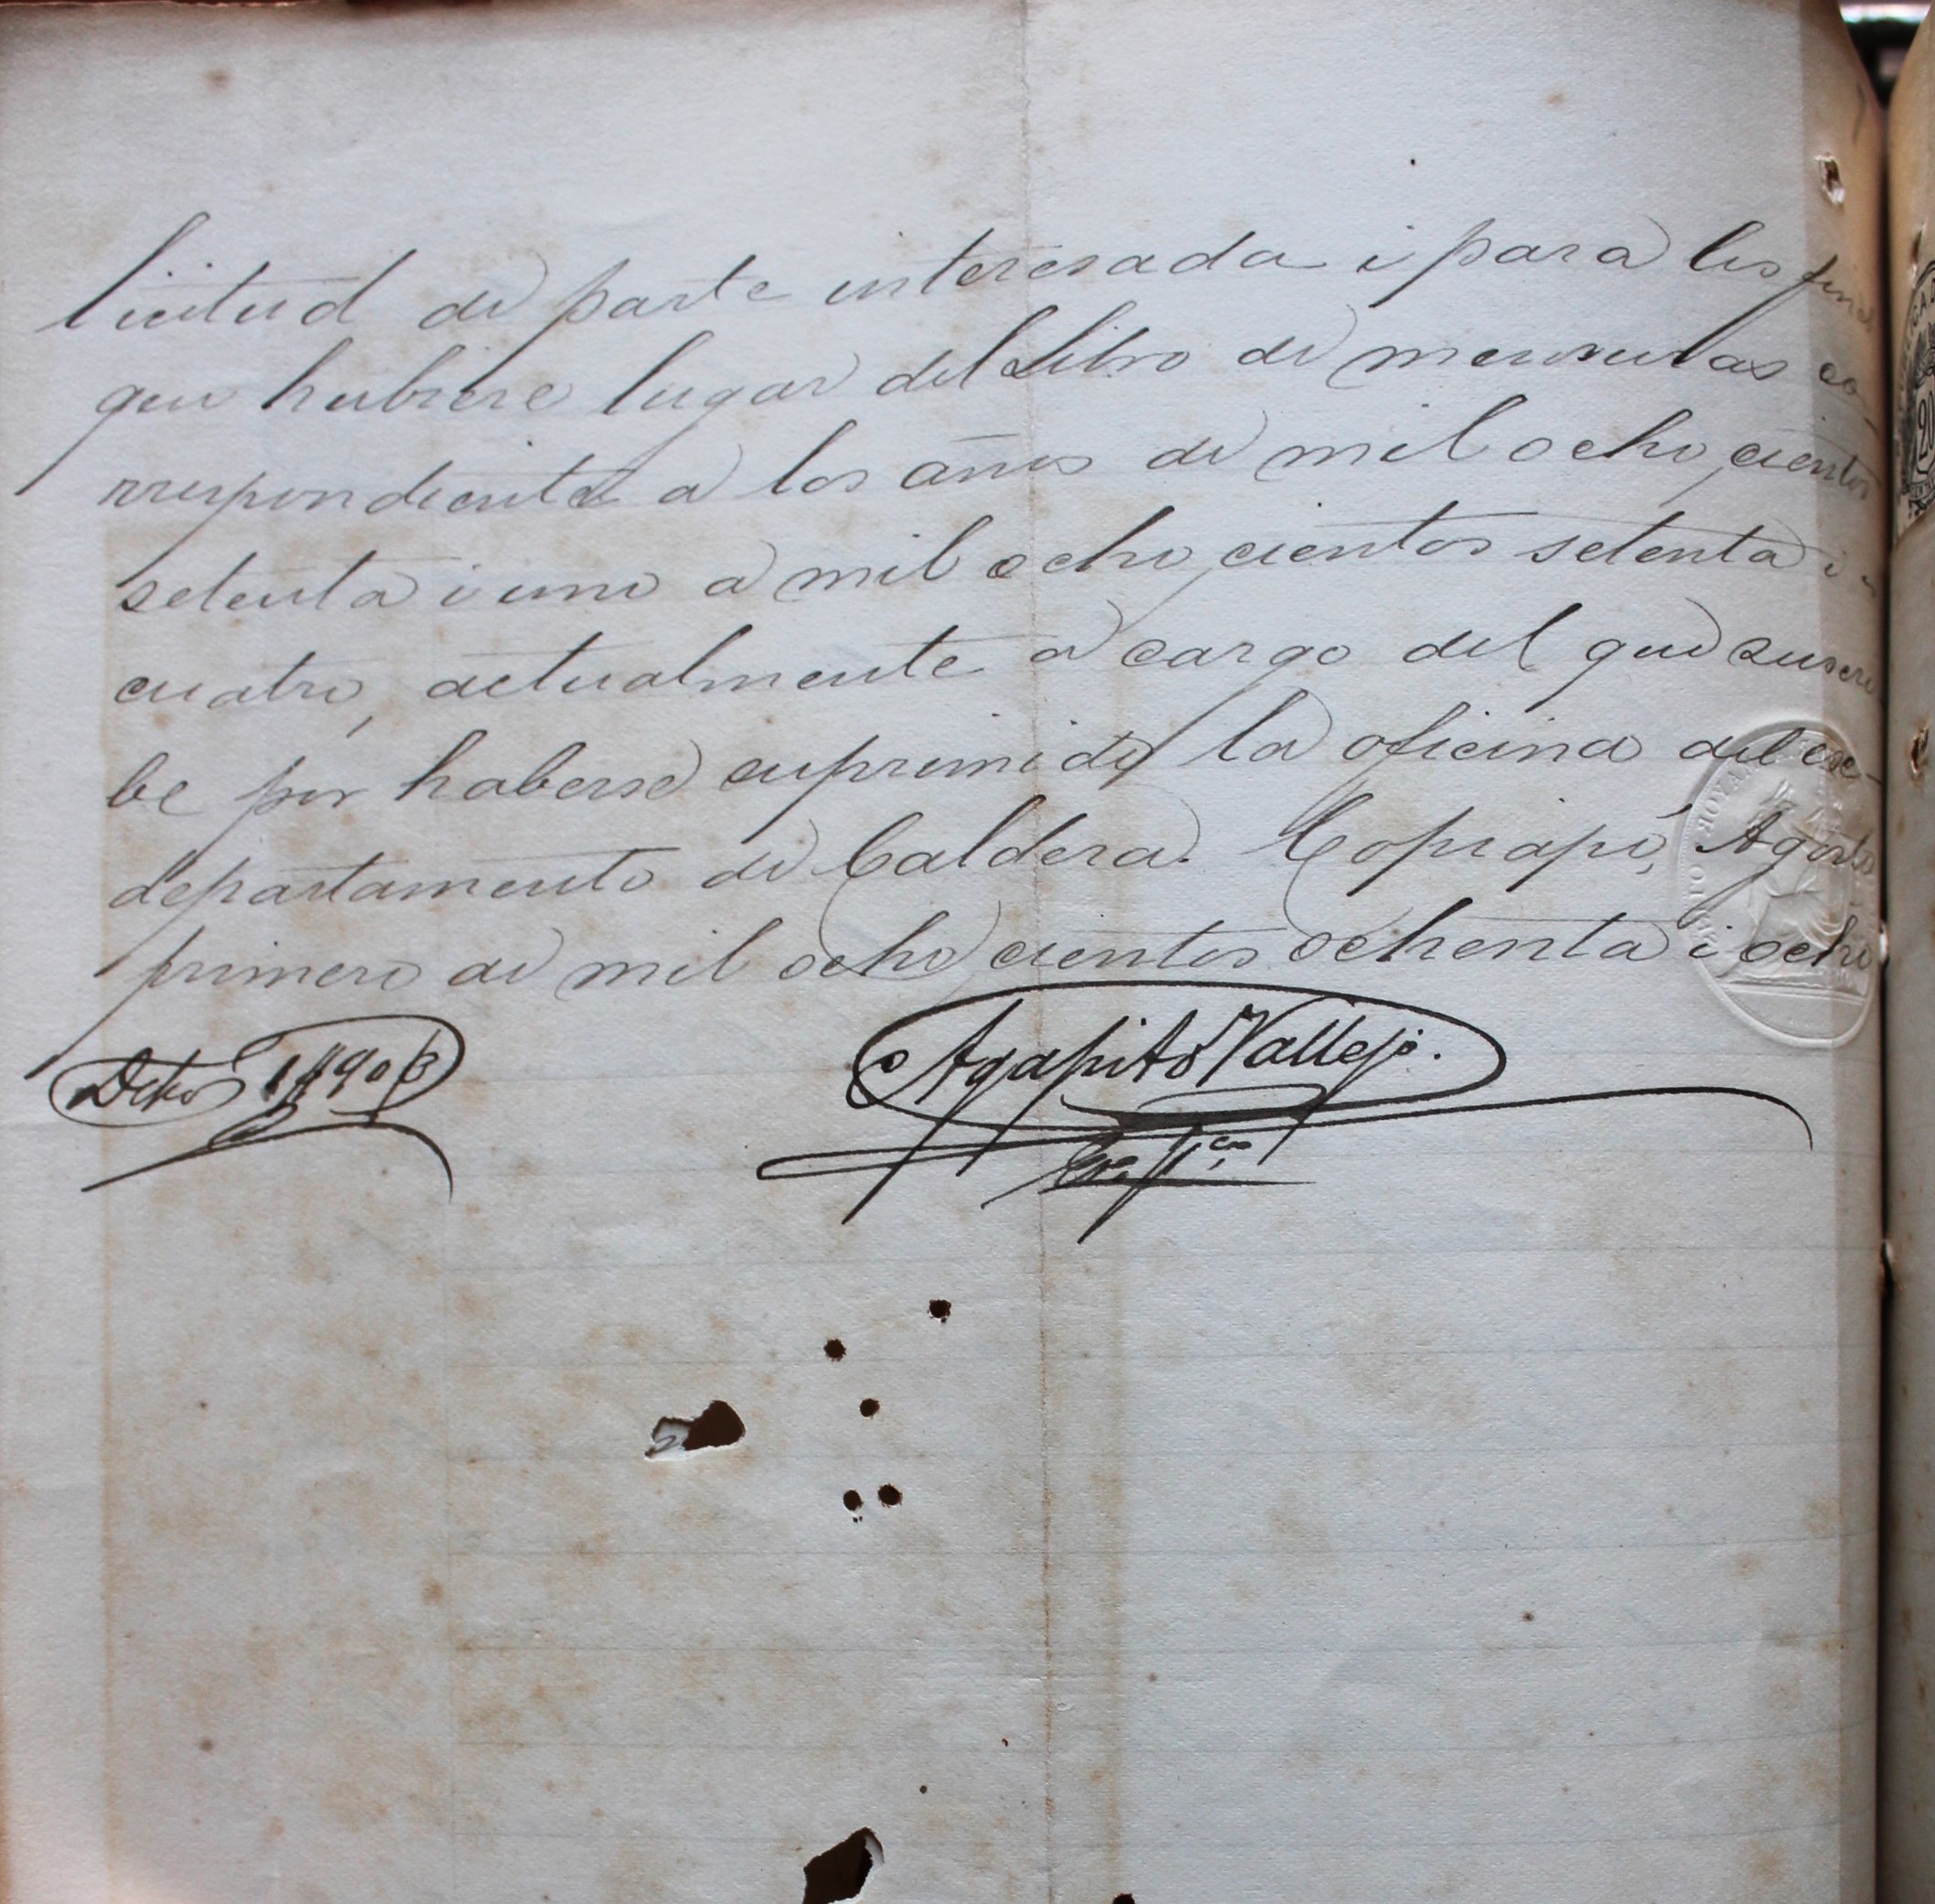 licitud de parte interesada i para los fines
que hubiere lugar del Libro de mensuras co-
rrespondiente a los años de mil ocho cientos
setenta i uno a mil ocho cientos setenta i
cuatro, actualmente a cargo del que suscri
be por haberse suprimido la oficina del ex-
departamento de Caldera. Copiapó, Agosto
primero de mil ocho cientos ochenta i ocho
Agapito Vallejo.
20